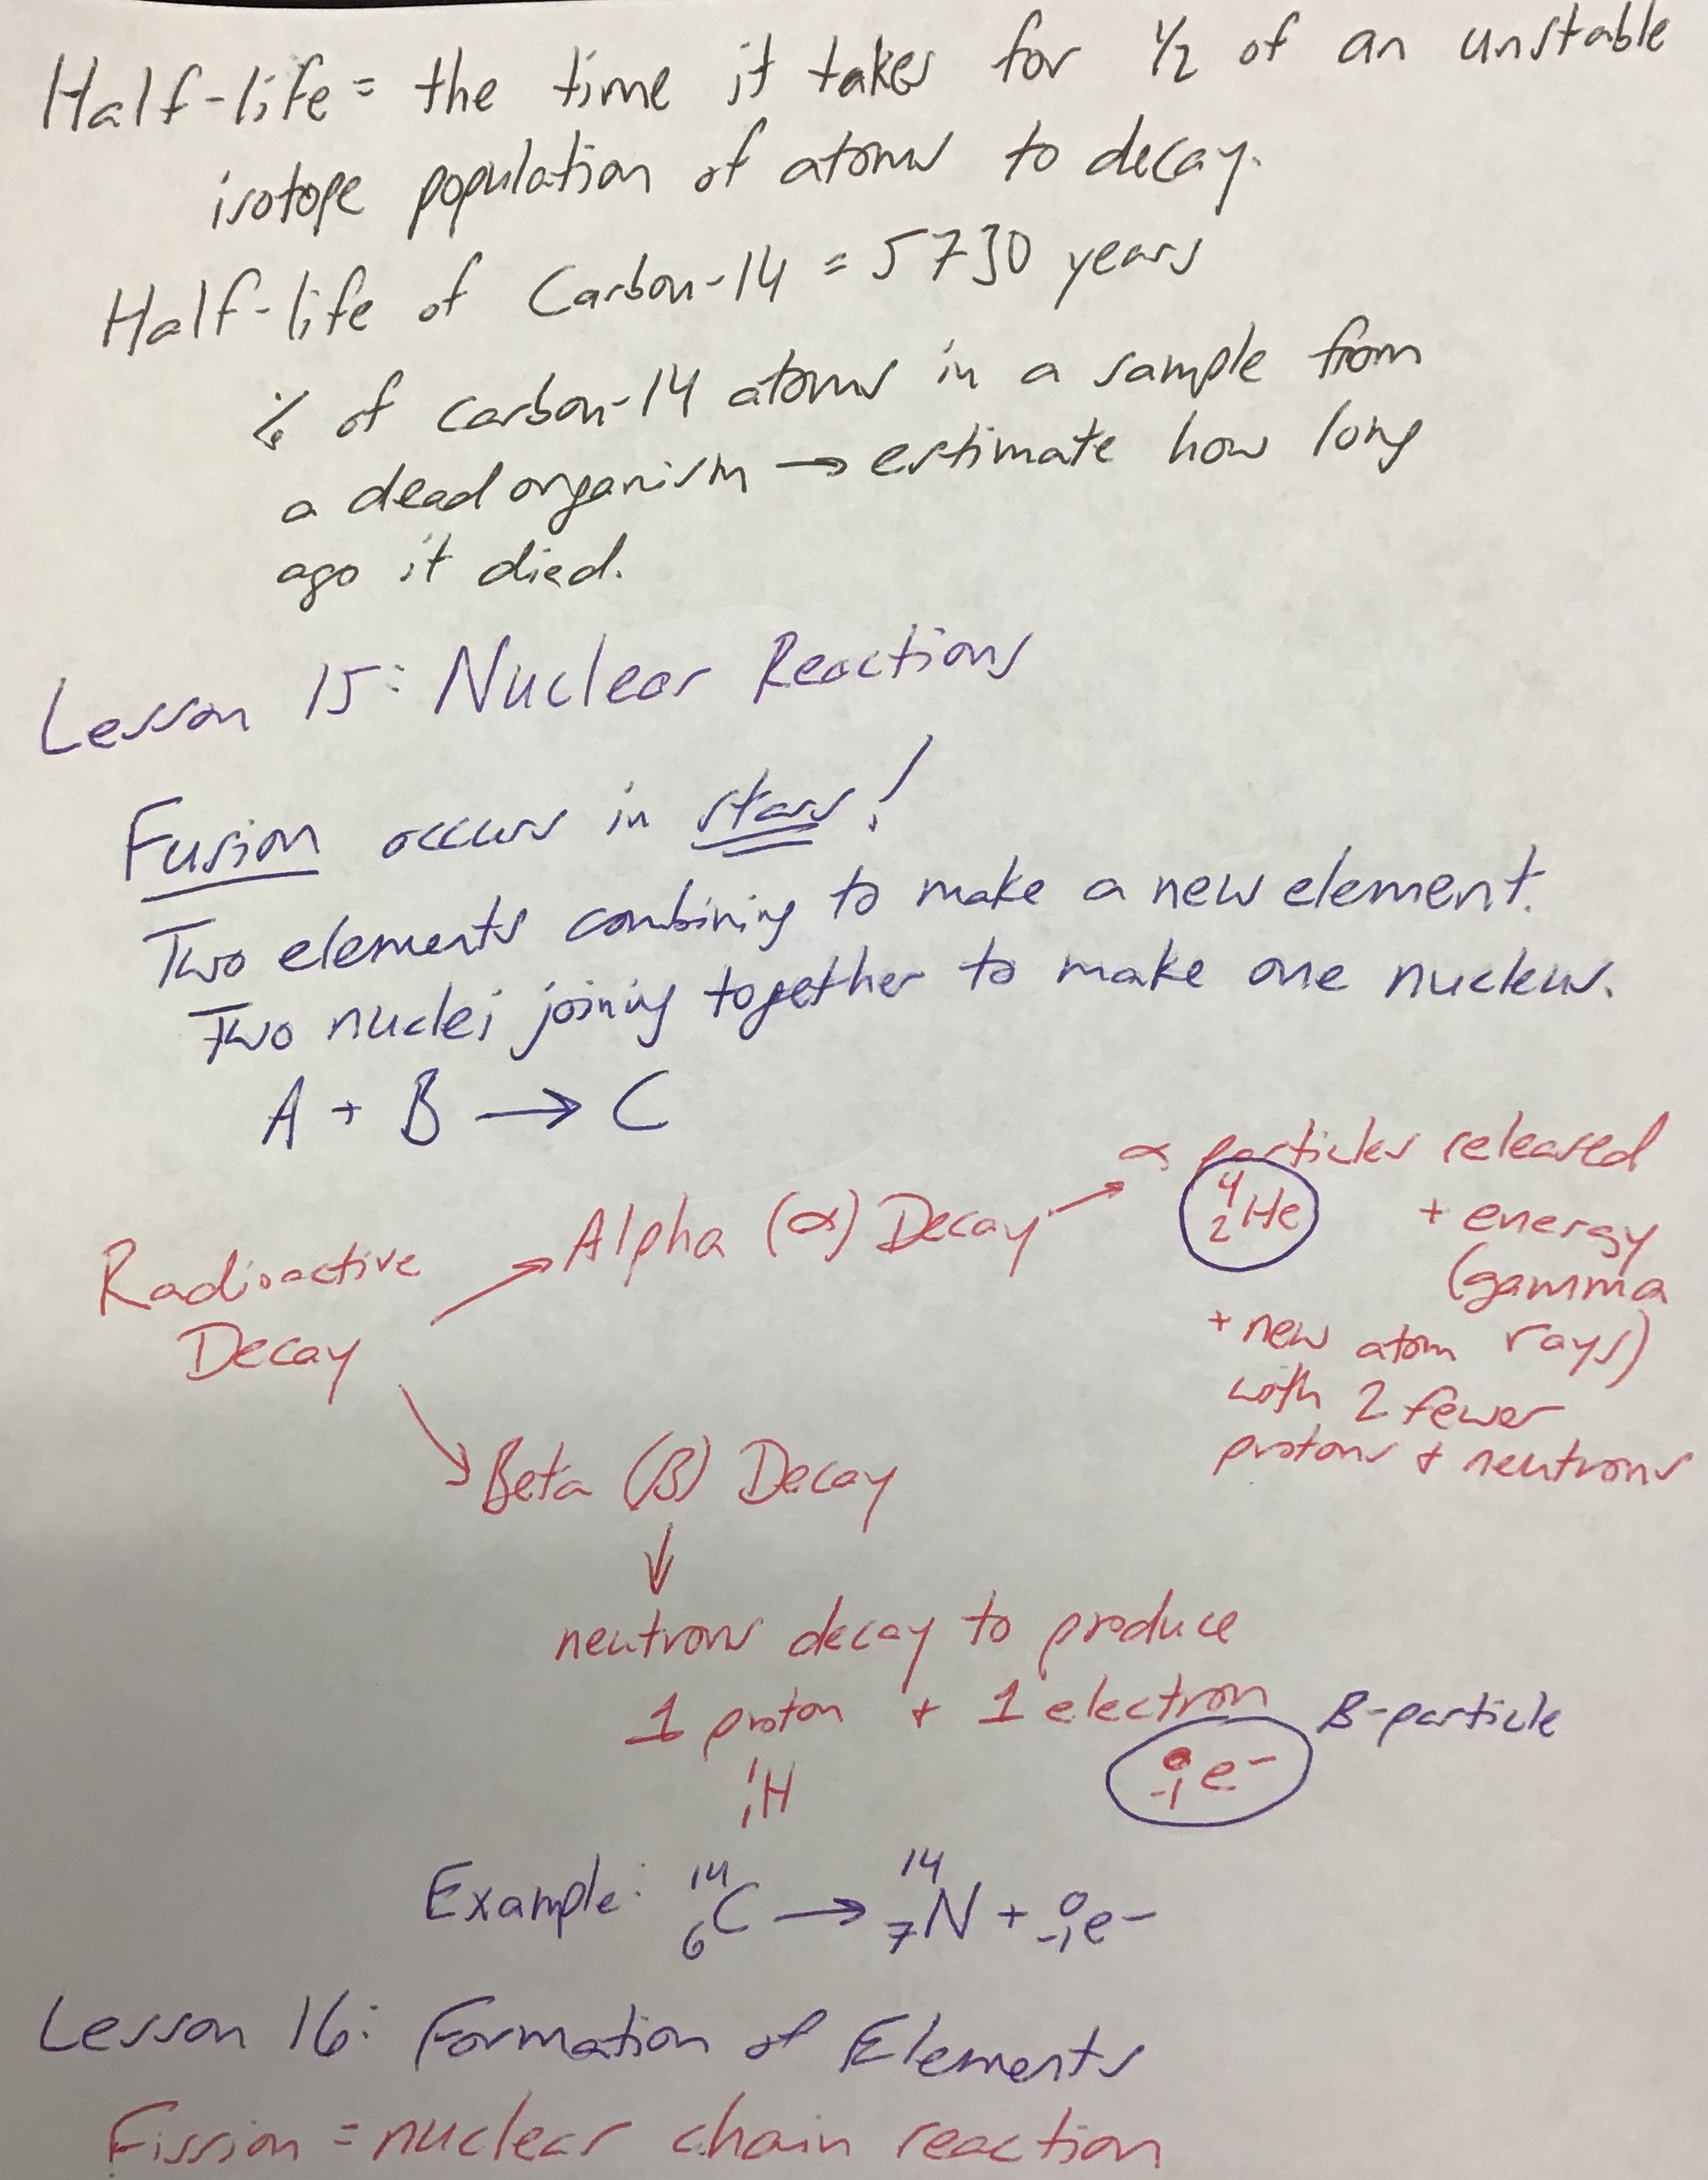 Half-life = the time it takes for ½ of an unstable
isotope population of atoms to decay.
Half-life of Carbon-14 = 5730 years
% of carbon-14 atoms in a sample from
a dead organism → estimate how long
ago it died.
Lesson 15: Nuclear Reactions
Fusion occurs in stars!
Two elements combining to make a new element.
Two nuclei joining together to make one nucleus.
A + B → C
Radioactive
Decay
Alpha (α) Decay
α particles released
⁴₂He + energy
(gamma
rays)
+ new atom
with 2 fewer
protons + neutrons
Beta (β) Decay
↓
neutrons decay to produce
1 proton + 1 electron β-particle
¹₁H ⁰₋₁e⁻
Example: ¹⁴₆C → ¹⁴₇N + ⁰₋₁e⁻
Lesson 16: Formation of Elements
Fission = nuclear chain reaction